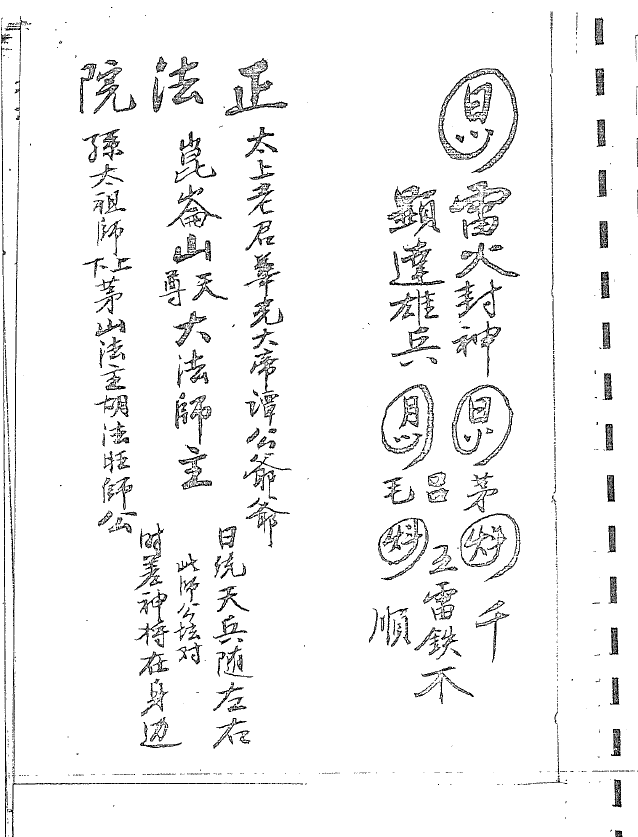 雷火封神
顕達雄兵
茅
呂
毛
五雷鉄
千
不
順
正法院
太上老君華光大帝譚公爺爺
崑崙山天尊大法師主
孫太祖師上下茅山法主胡法旺師公
日统天兵随左右
此师公坛对
时差神将在身边